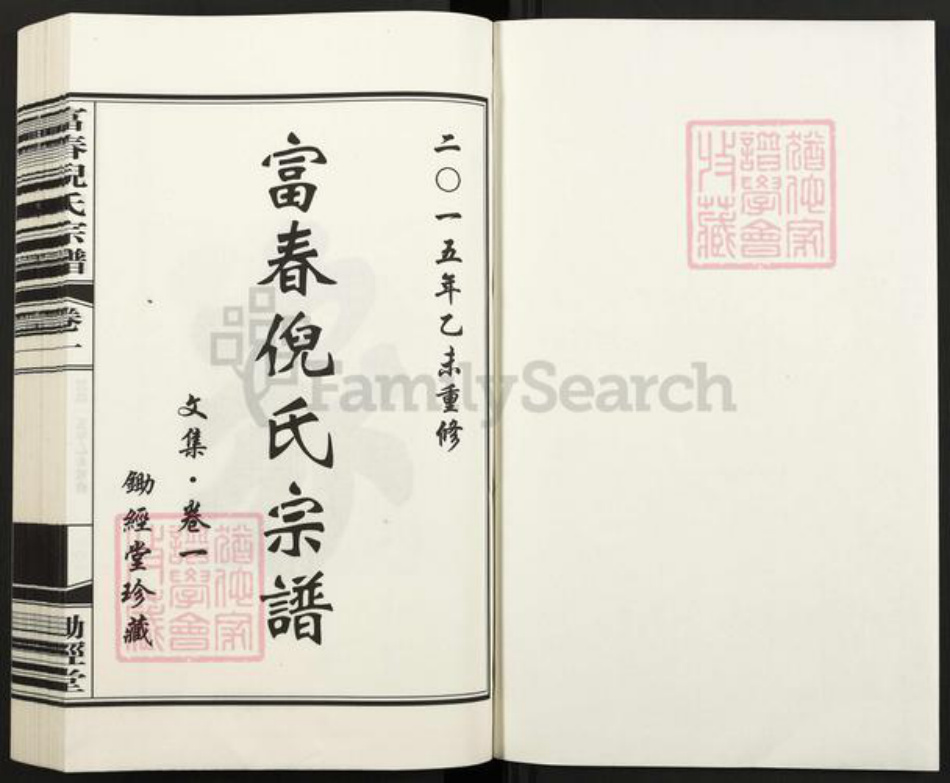 二〇一五年乙未重修
富春倪氏宗譜
文集·卷一
鋤經堂珍藏
富春倪氏宗譜
卷一
鋤經堂
猶他家
譜學會
收藏
FamilySearch